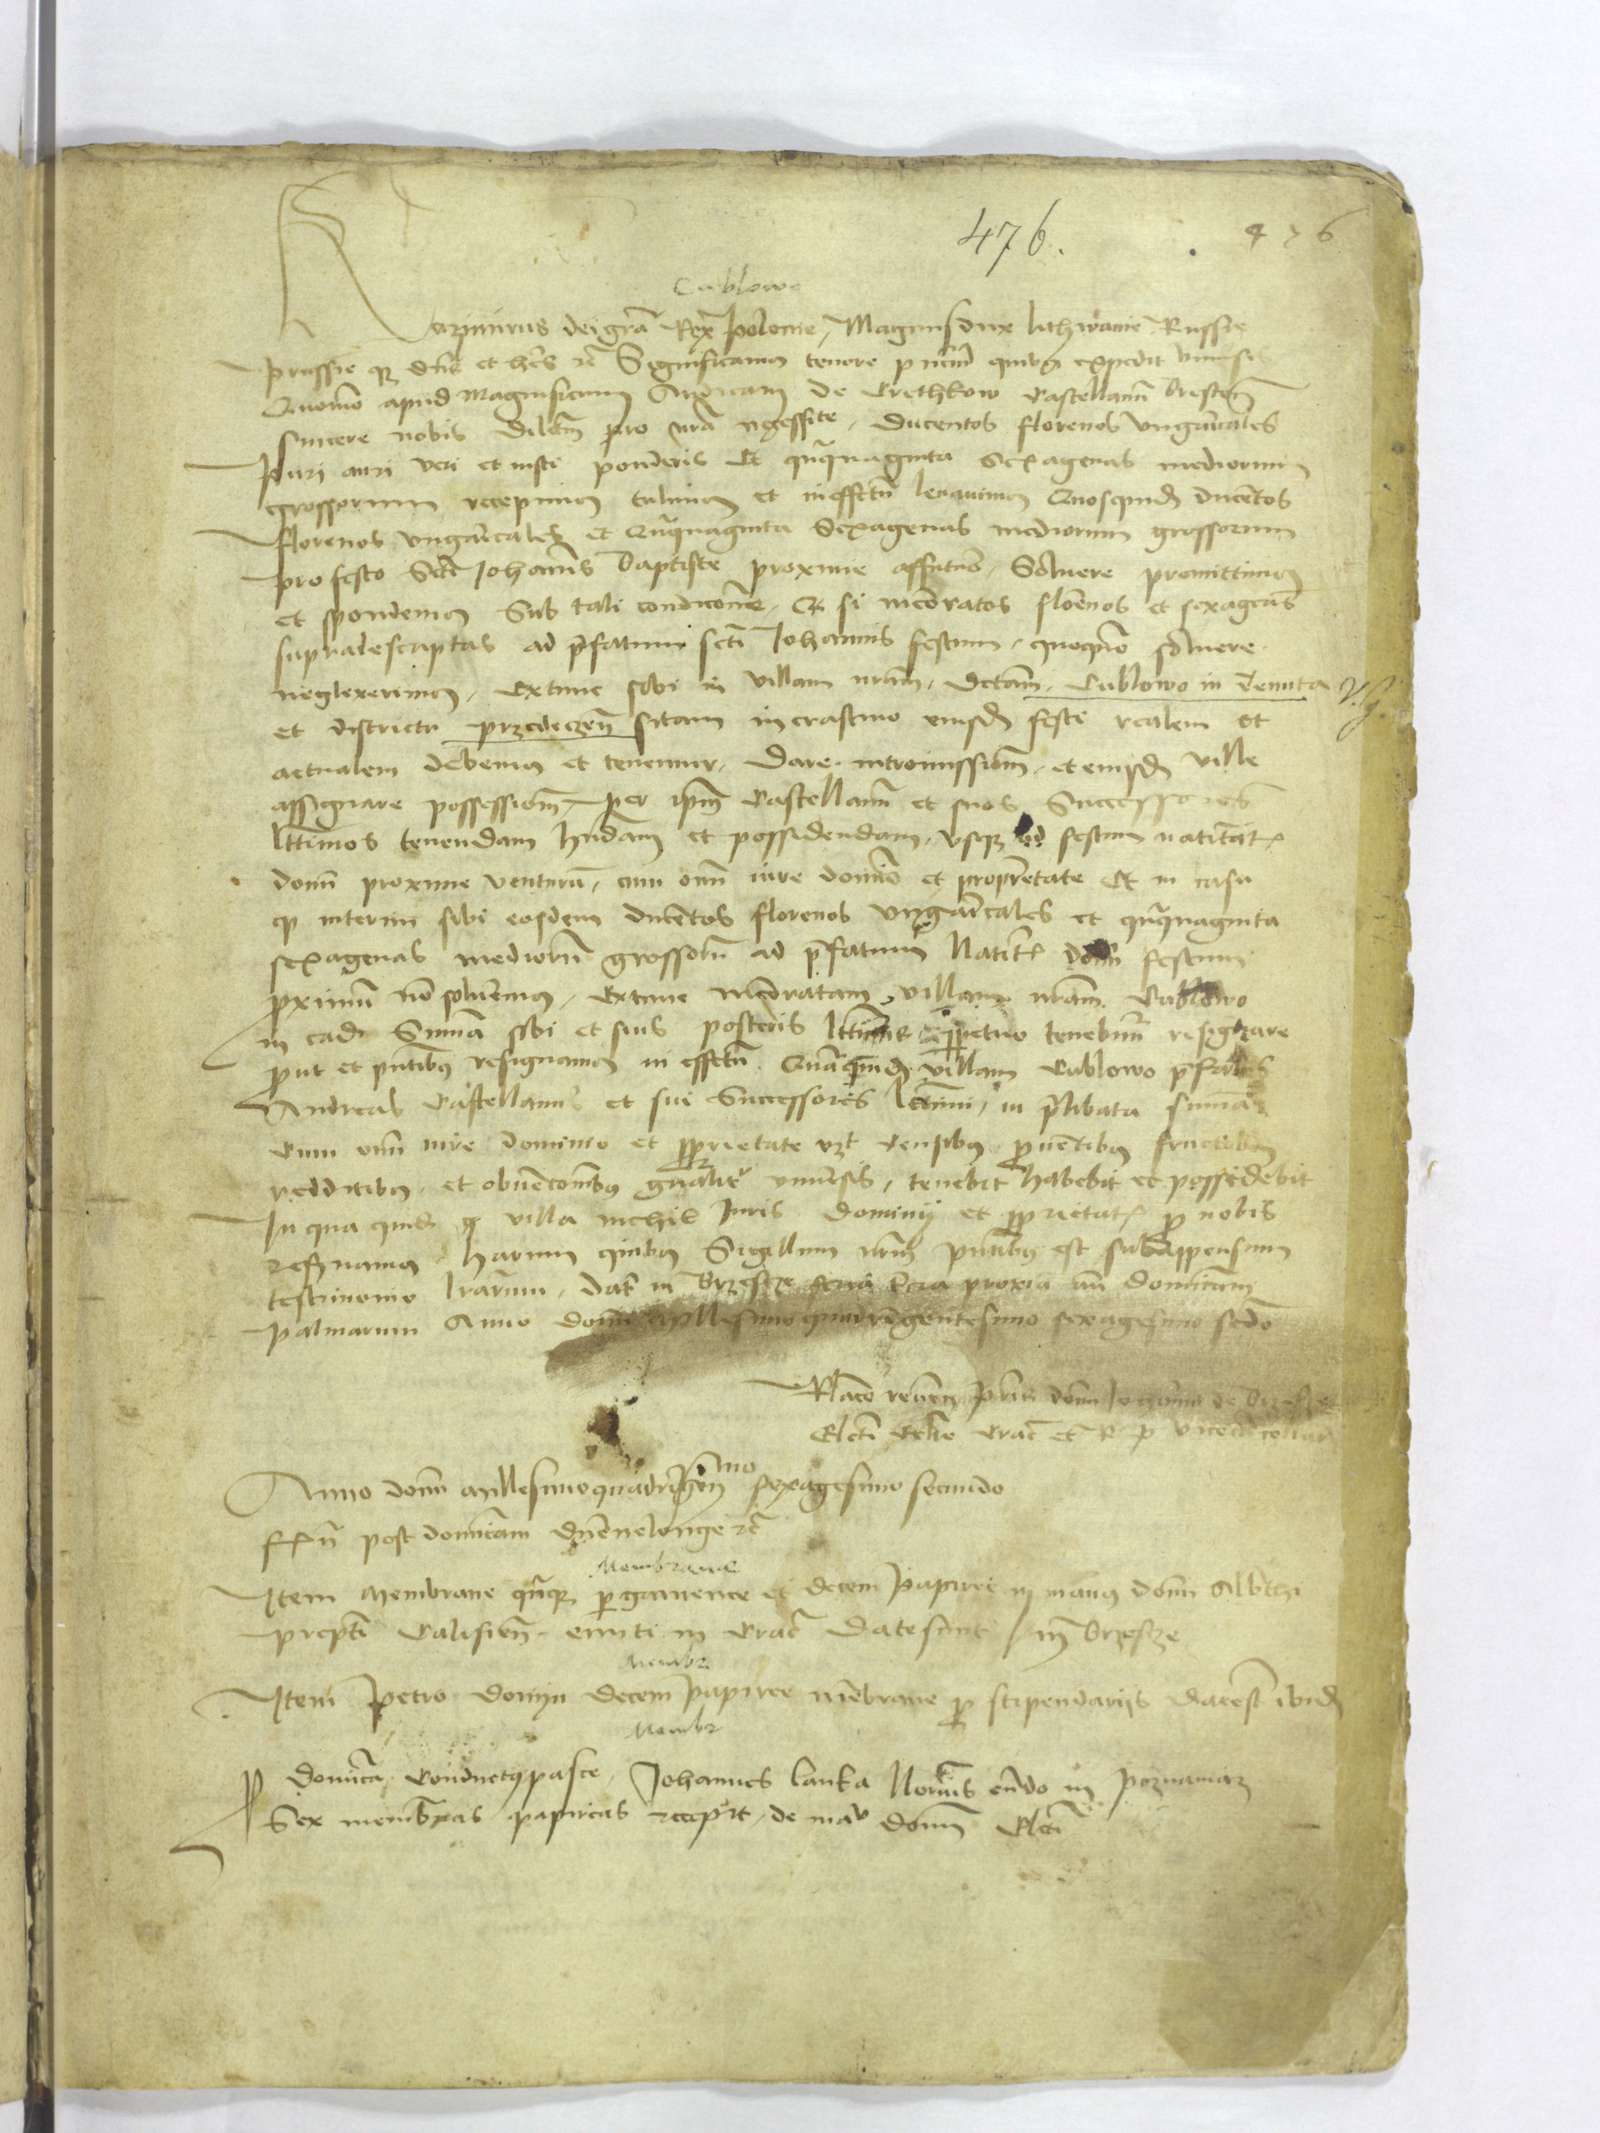 476.
476
Cublowo
Kazimirus dei gra Rex Polonie, Magnusdux lithwanie Russie
Prussie qz dns et hes etc Significamus tenore pncium quibus expedit vniusis
Quomo apud Magnificum Andream de Crethkow Castellanum Bresten
sincere nobis dilcm pro nra ncessite, ducentos florenos vngaricales
puri auri veri et iusti ponderis Et quinquaginta Sexagenas mediorum
grossorum recepimus tulimus et in effctum leuauimus Quosquid ducentos
florenos vngaricales et Quinquaginta Sexagenas mediorum grossorum
pro festo Scti Johanis Baptiste proxime affuturo, Soluere promittimus
et spondemus Sub tali condicione, Q si mcoratos florenos et sexagenas
supradescriptas ad pfatum scti Johannis festum, quoquo soluere
neglexerimus, Extunc sibi in villam nram, dctam, Cublowo in Tenuta
et districtu przedeczen sitam in crastino eiusd festi realem et
actualem debemus et tenemur, dare intromissionem, et eiusd ville
assignare possessionem, Per ipm Castellanum et suos Successores
lttimos tenendam hndam et possidendam, vsqz ad festum natitat
domi proxime venturum, cum omi iure dominio et proprietate Et in casu
q interim sibi eosdem ducentos florenos vngaricales et quinquaginta
sexagenas mediorum grossorum ad pfatum Natiti domi festum
proximum non soluemus, Extunc mcoratam villam nram Cublowo
in eadem Summa sibi et suis posteris lttimis ppetuo tenebimur resignare
prout et pntibus resignamus in effctum Quamquid villam Cublowo pfatus
Andreas Castellanus et sui Successores lttimi, in plibata summa
Cum omi iure dominio et pprietate vzt Censibus prouentibus fructibus
redditibus, et obuencoibus gnalit vniuersis, tenebit habebit et possidebit
In qua quid villa nichil Juris dominij et pprietat p nobis
reseruamus, Harum quibus Sigillum nrum pntibus est subappensum
testimonio lrarum, dat in Brzescze feria tcia proxia an dominicam
palmarum Anno domi millesimo quadringentesimo sexagesimo scdo
Relacio reuen pris domi Johannis de Brzeszcze
Elcti Ecclie Crac et R p vicecancellarii
Anno domi millesimoquadringenmo sexagesimo secundo
post domicam Dnenelonge etc
Membrane
Item Membrane quinqz pgamence et decem papiree in manus domi Alberti
prepti Calisien emiti in Crac date sunt in Brzescze
Membr
Item Petro domyn decem papiree membrane p stipendariis date st ibid
Membr
domica Conductus pasce, Johannes lanka Norius eundo in poznaniam
Sex membranas papireas recepit, de manu domi Elcti